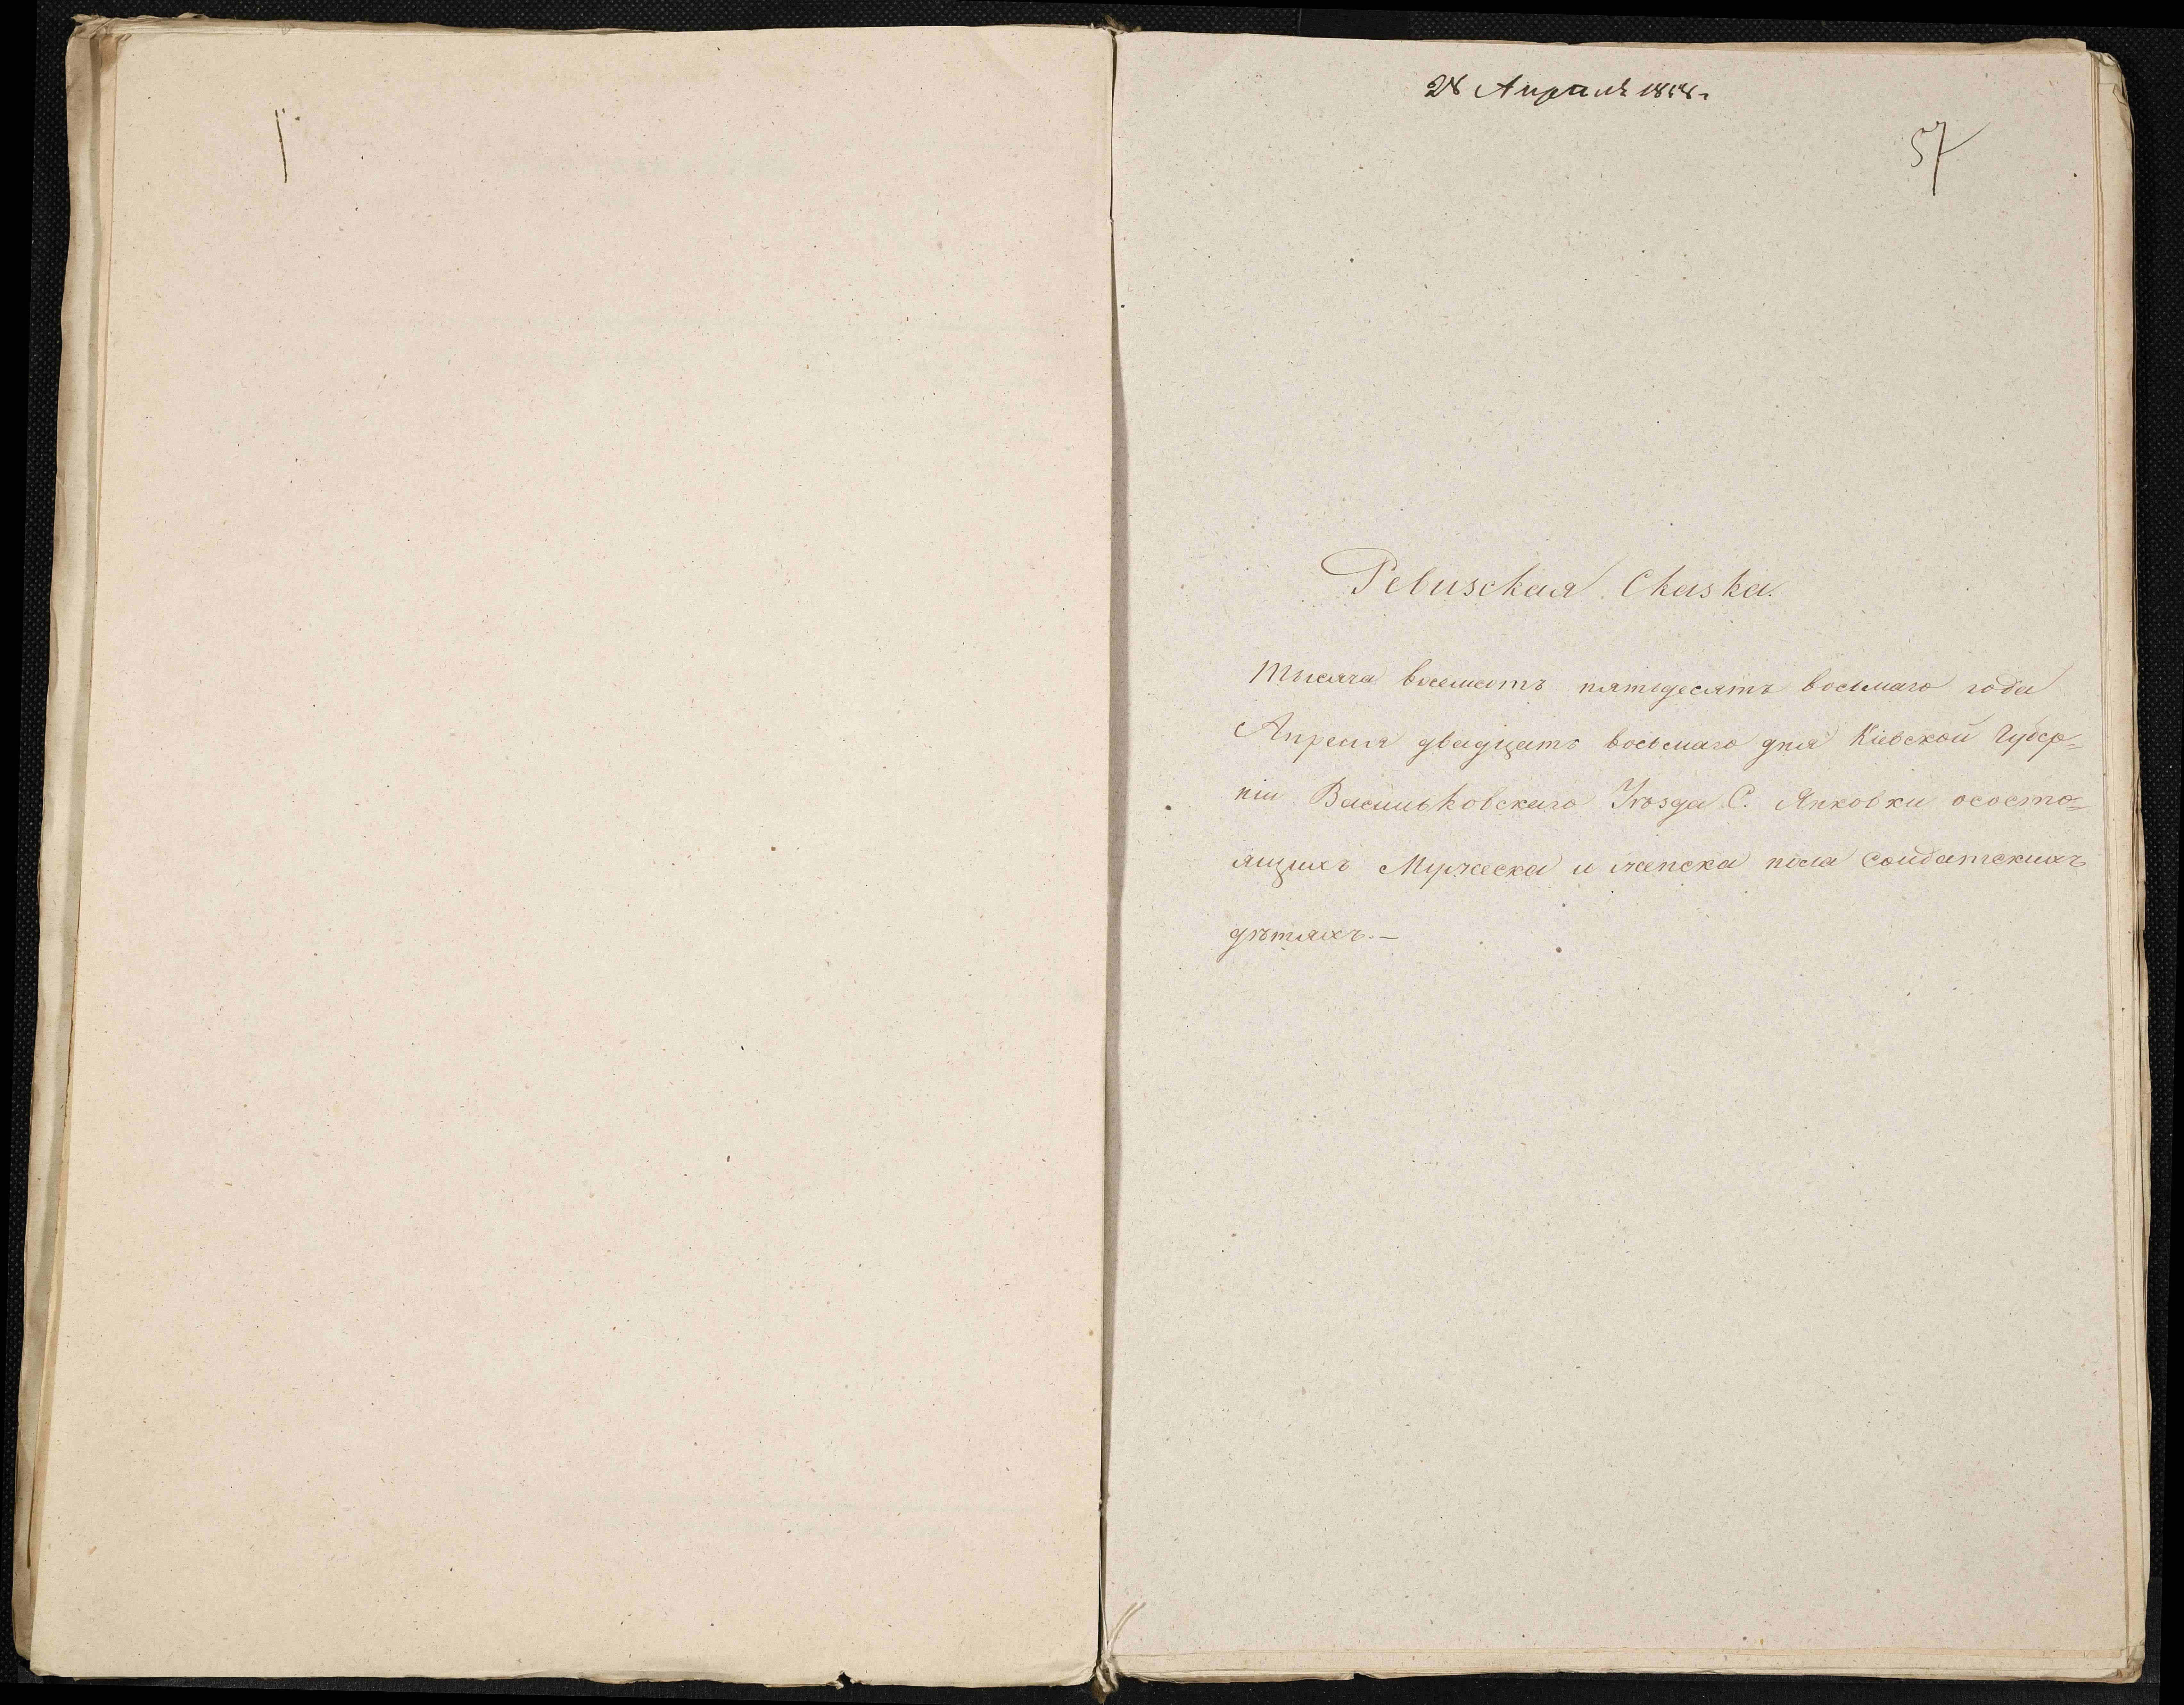 28 Апрѣля 1858.
57
Ревизская Сказка.
Тысяча восемсотъ пятьдесятъ восьмаго года
Апреля двадцать восьмаго дня Кіевской Губер=
ніи Васильковскаго Уѣзда С. Янковки ососто=
ящихъ Мужеска и женска пола солдатскихъ
дѣтяхъ.—